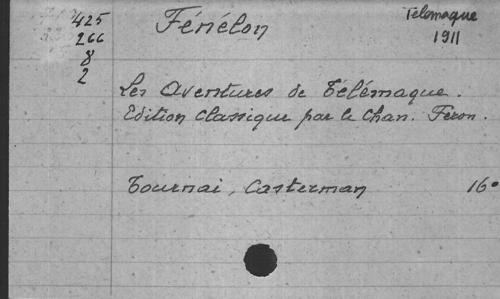 425
266
8
2
Fénélon
Télémaque
1911
Les Aventures de Télémaque.
Edition classique par le Chan. Feron.
Tournai, Casterman 16°